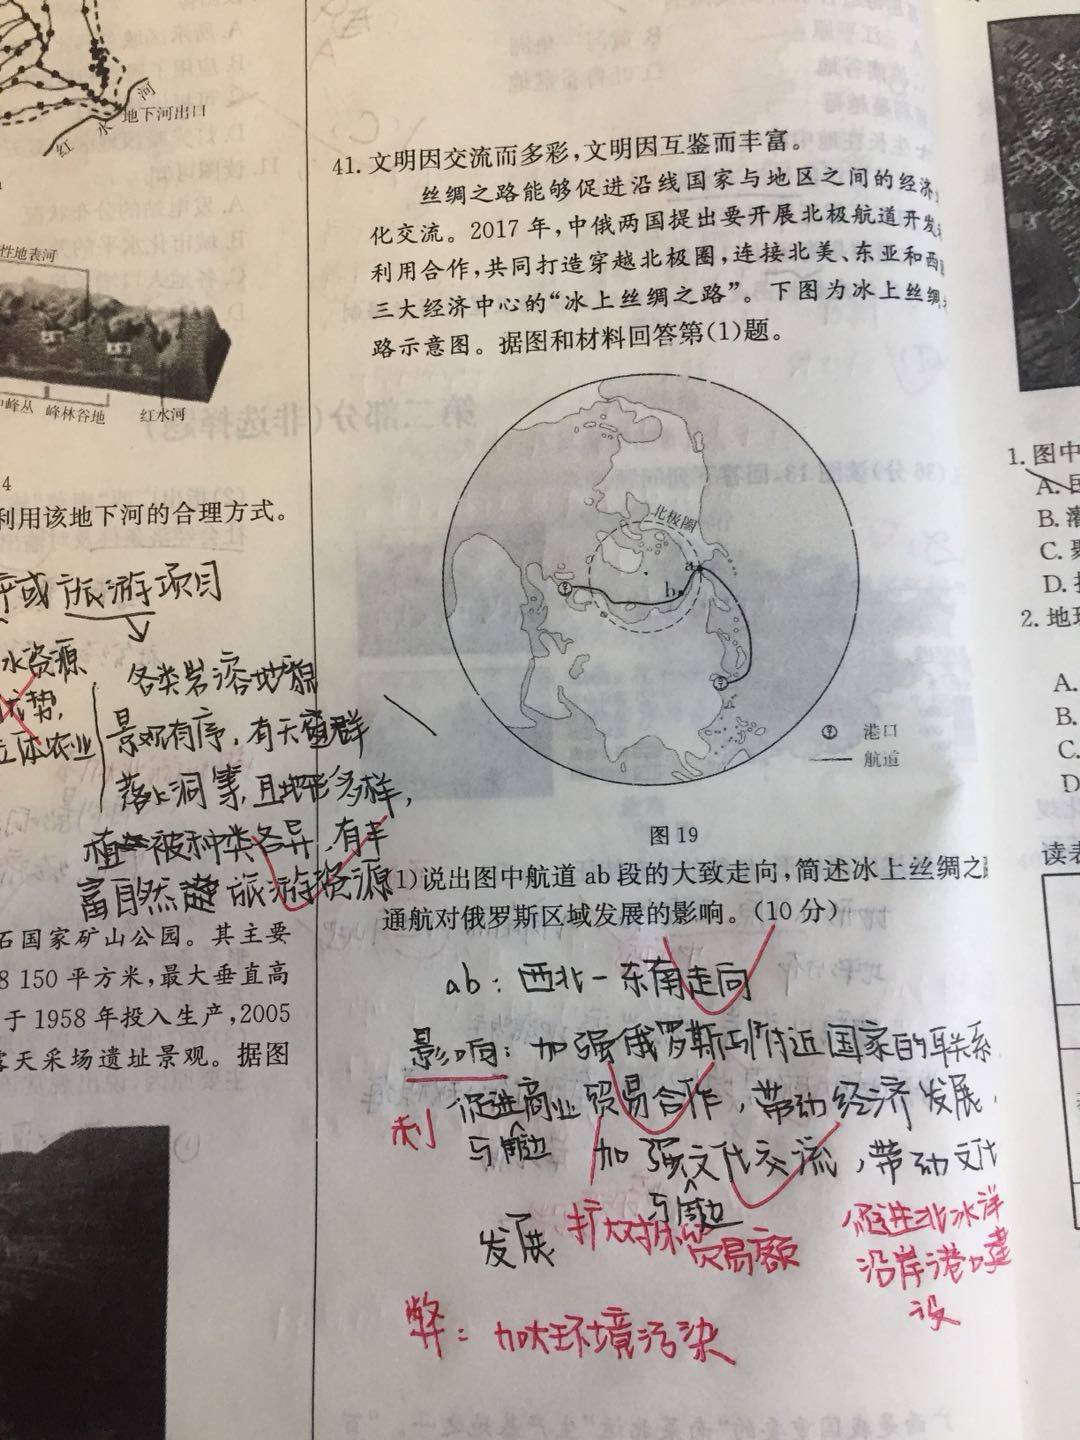 地下河出口
红水河
性地表河
峰丛
峰林谷地
红水河
4
利用该地下河的合理方式。
或旅游项目
水资源
优势,
立体农业
各类岩溶地貌
景观有序,有天
落
洞
,且地形多样,
植被种类各异,有丰
富自然
旅游资源
石国家矿山公园。其主要
8 150 平方米,最大垂直高
于 1958 年投入生产,2005
露天采场遗址景观。据图
41. 文明因交流而多彩,文明因互鉴而丰富。
丝绸之路能够促进沿线国家与地区之间的经济
化交流。2017 年,中俄两国提出要开展北极航道开发
利用合作,共同打造穿越北极圈,连接北美、东亚和西
三大经济中心的“冰上丝绸之路”。下图为冰上丝绸
路示意图。据图和材料回答第(1)题。
北极圈
a
b
港口
航道
图 19
(1)说出图中航道 ab 段的大致走向,简述冰上丝绸之
通航对俄罗斯区域发展的影响。(10 分)
ab:西北—东南走向
影响:加强俄罗斯与附近国家的联系
利
促进商业贸易合作,带动经济发展,
与周边
加强文化交流,带动文化
与周边
发展
扩大对外贸易额
促进北冰洋
沿岸港口建
设
弊:加大环境污染
1. 图中
A.
B.
C.
D.
2. 地
A.
B.
C.
D
读表